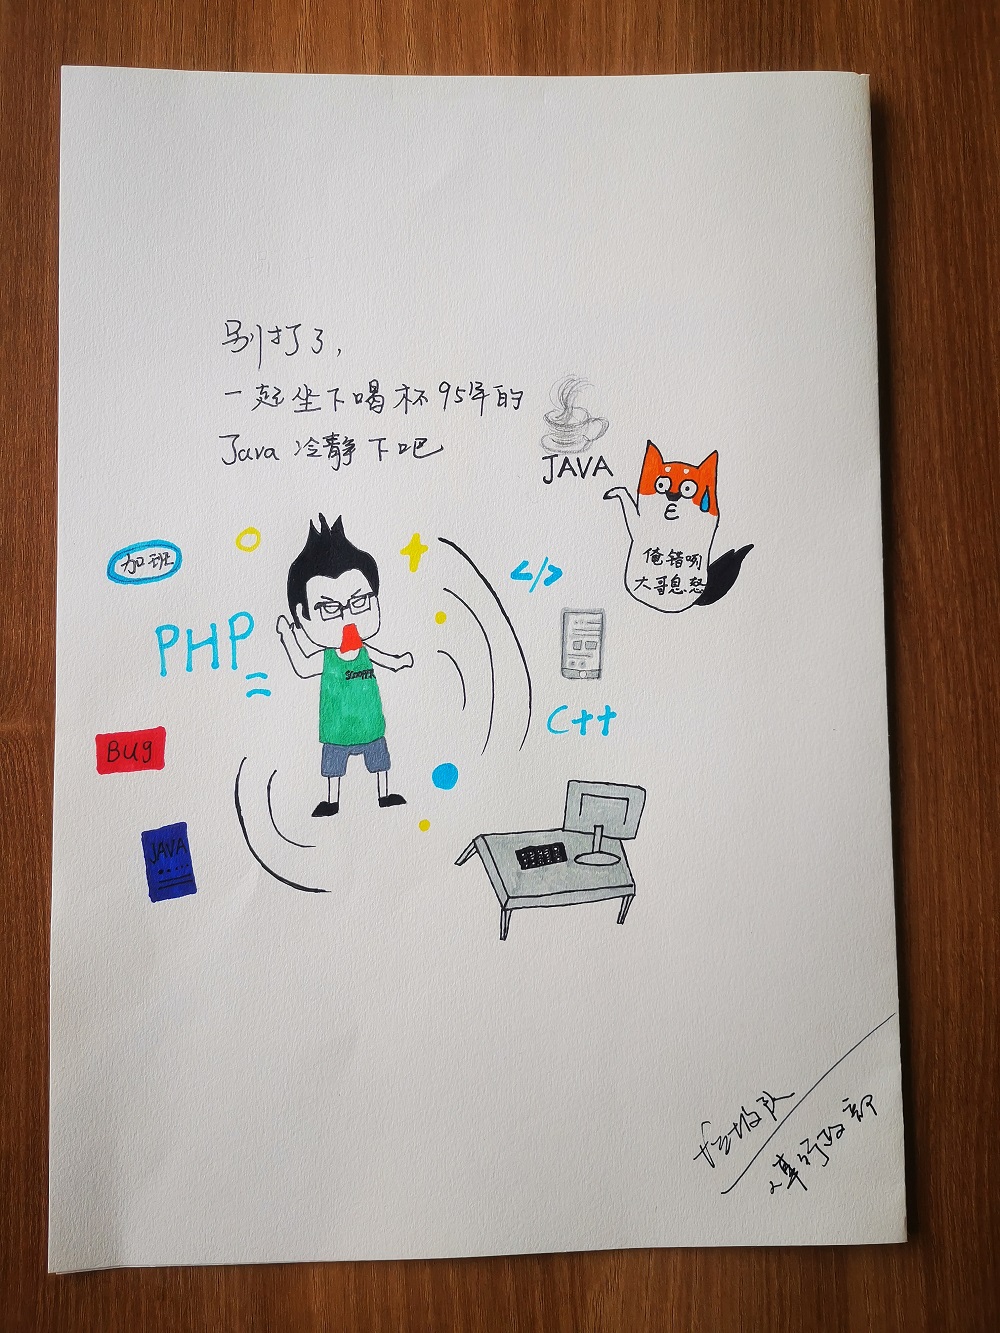 别打了，
一起坐下喝杯95年的
Java 冷静下吧
JAVA
俺错咧
大哥息怒
加班
</>
PHP
SCOOPER
C++
BUg
JAVA
行政部